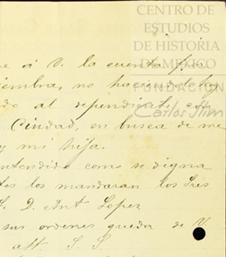 CENTRO DE
ESTUDIOS
DE HISTORIA
DE MÉXICO
FUNDACIÓN
Carlos Slim
e á V. la cuenta fi
iembra, no haciendo
do al
Ciudad, en busca de me
y mi hija.
ntendido como se digna
los mandaran los Tres
D. Ant Lopez
sus ordenes queda de V
att S. S.